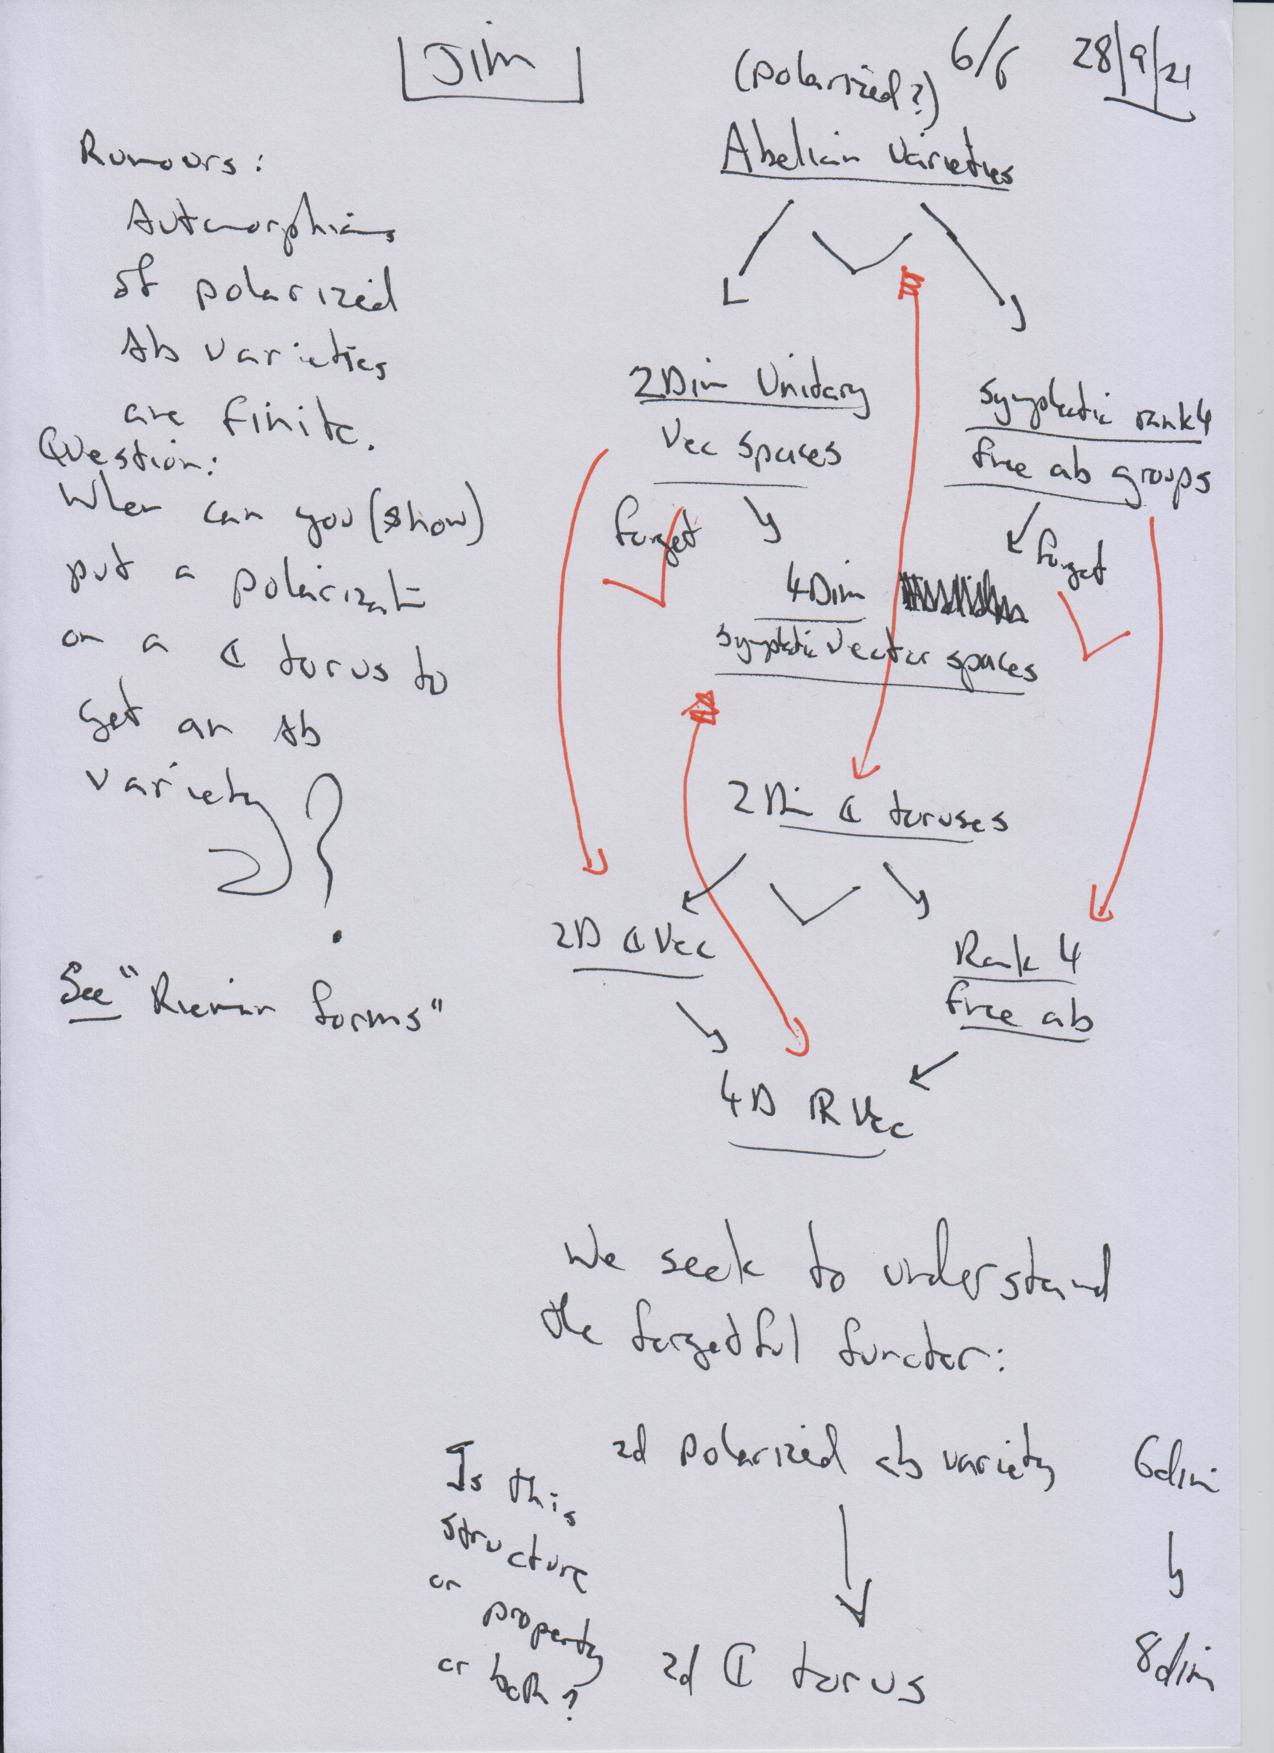 Jim
6/6 28/9/21
(polarized?)
Abelian varieties
Rumours:
Automorphisms
of polarized
Ab varieties
are finite.
Question:
When can you (show)
put a polarizati
on a ℂ torus to
get an Ab
variety?
See "Riemann forms"
2Dim Unitary
Vec spaces
Symplectic rank 4
free ab groups
forget
forget
4Dim
Symplectic Vector spaces
2Dim ℂ toruses
2D ℂ Vec
Rank 4
free ab
4D ℝ Vec
We seek to understand
the forgetful functor:
2d polarized ab variety 6dim
Is this
structure
or property
or both?
2d ℂ torus 8dim